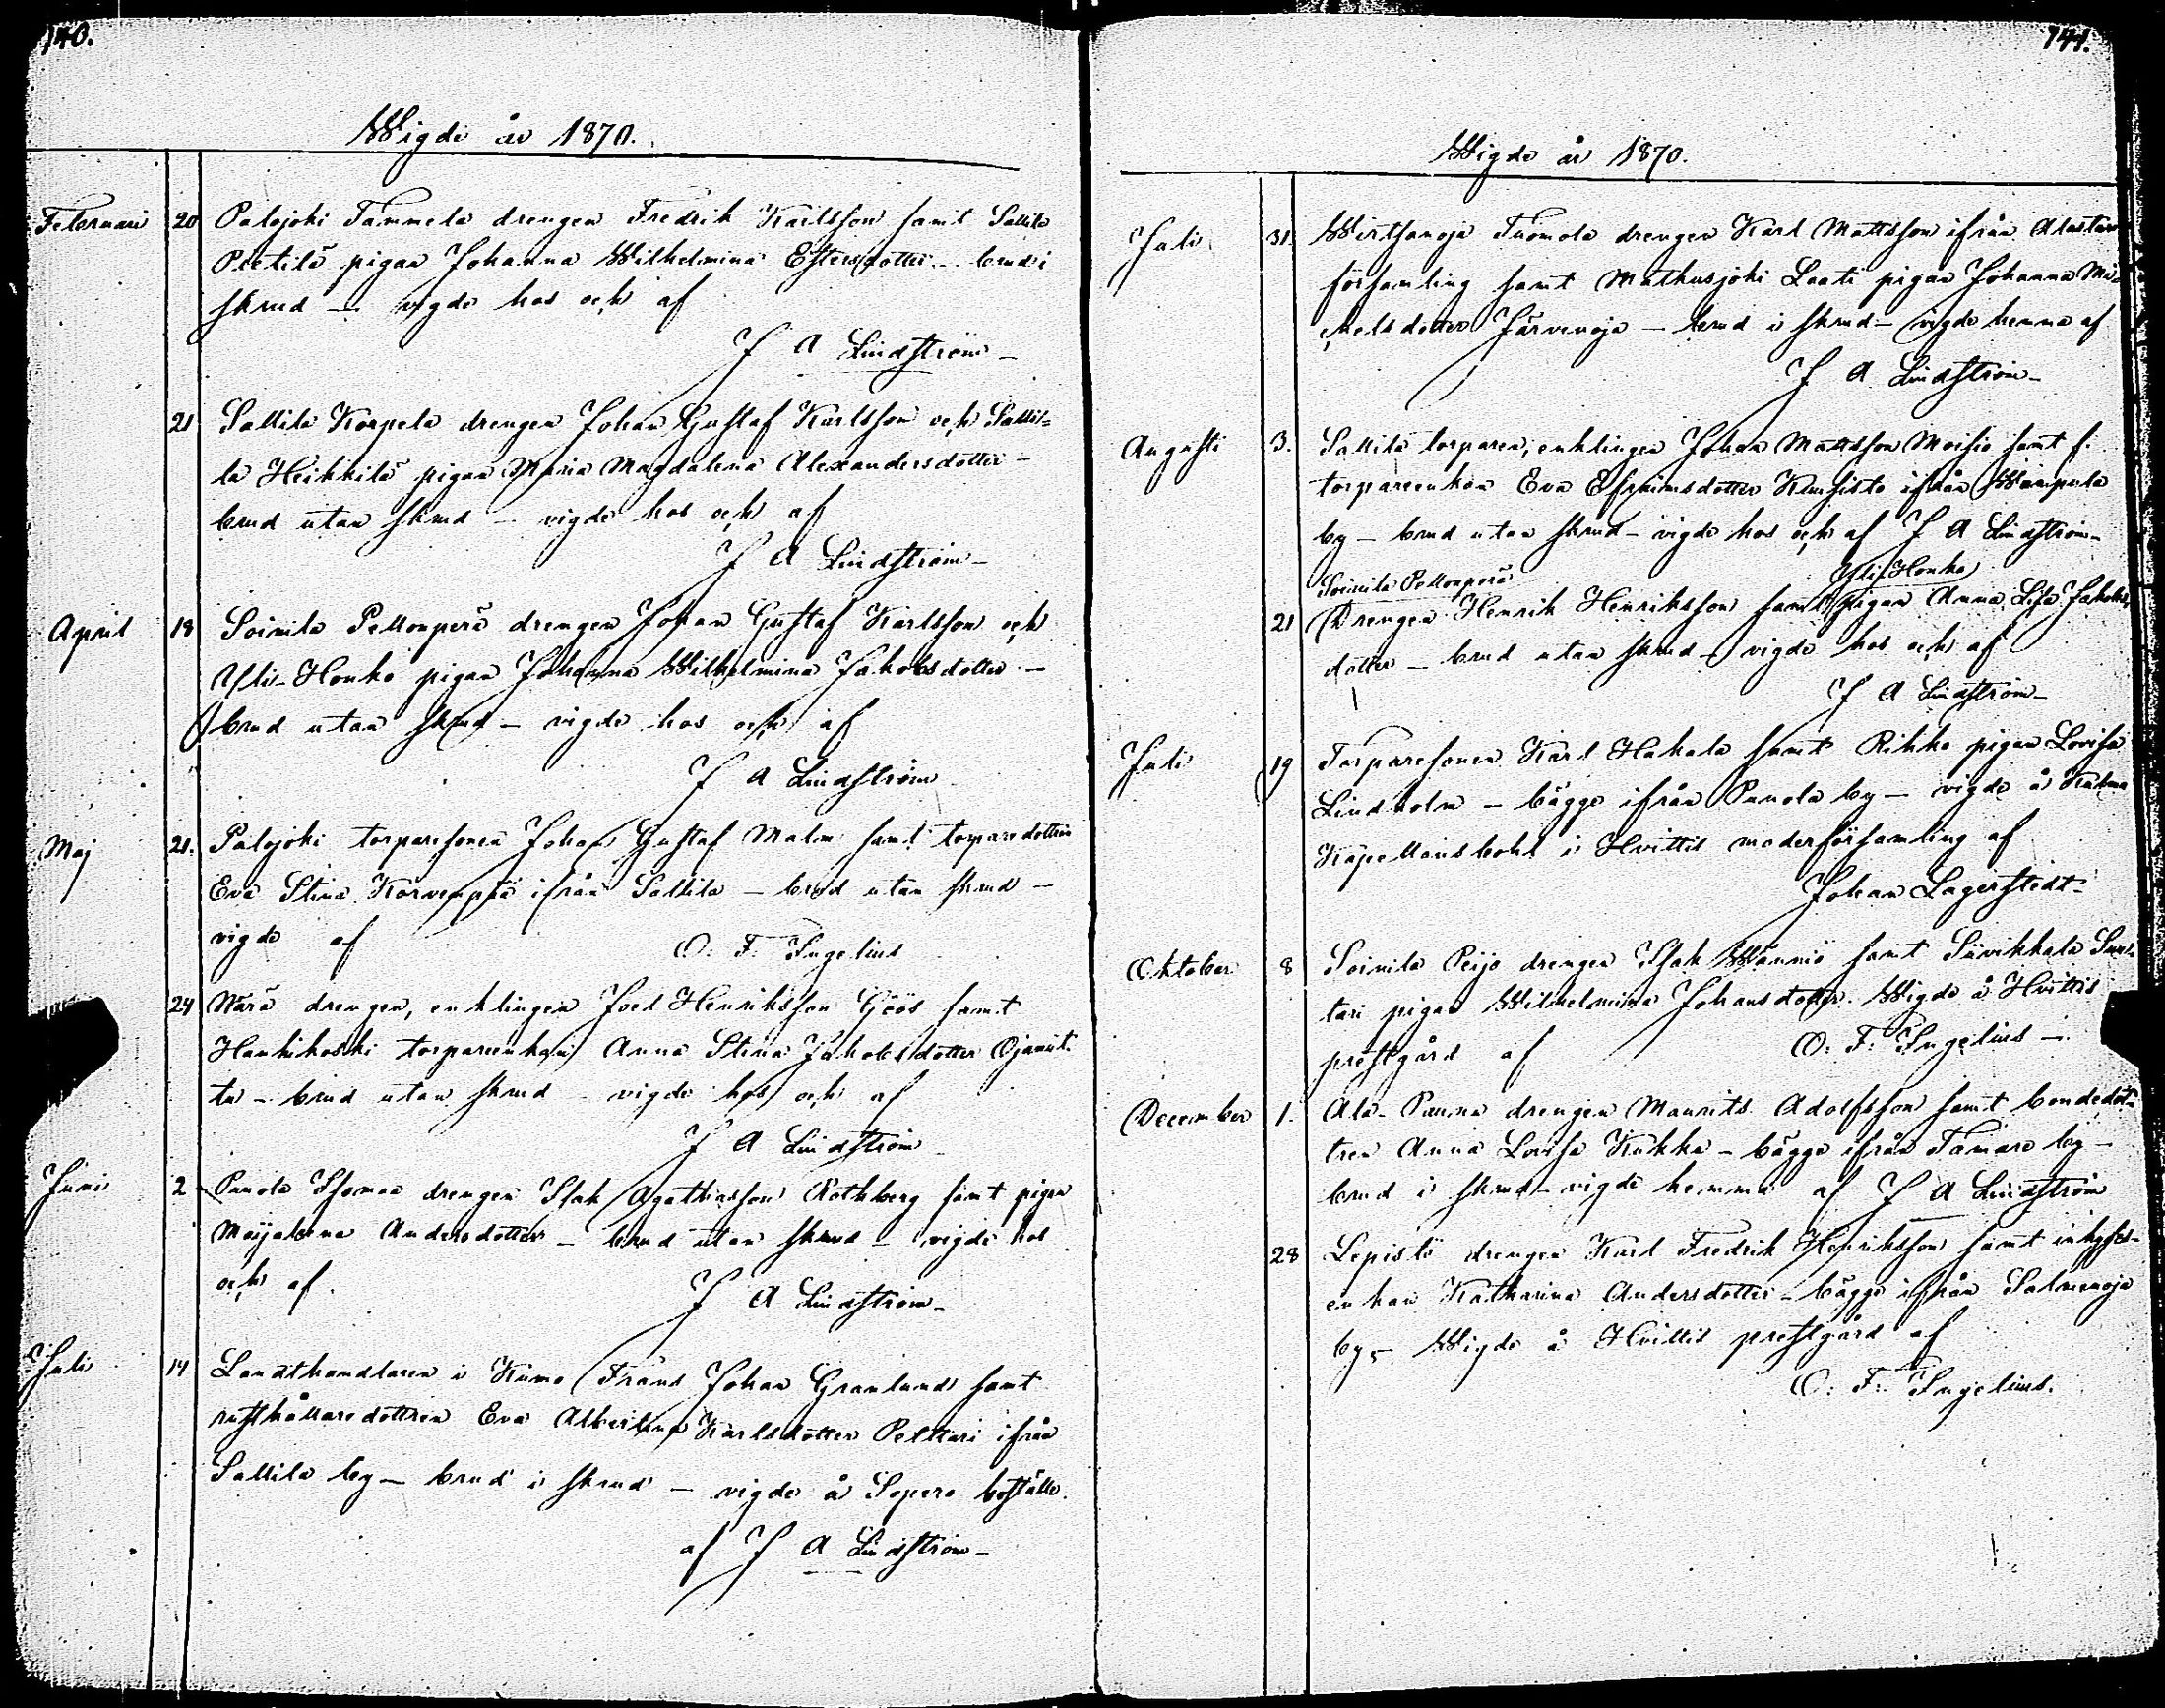 140.
Wigde år 1870.
Februari 20 Palojoki Tammela drengen Fredrik Karlsson samt Sallila
Pietilä pigan Johanna Wilhelmina Estersdotter – brud i
skrud – vigde hos och af
J A Lindström –
21 Sallila Korpela drengen Johan Gustaf Karlsson och Salli=
la Heikkilä pigan Maria Magdalena Alexandersdotter –
brud utan skrud – vigde hos och af
J A Lindström –
April 18 Soinila Pellonperä drengen Johan Gustaf Karlsson och
Yli-Honko pigan Johanna Wilhelmina Jakobsdotter –
brud utan skrud – vigde hos och af
J A Lindström
Maj 21. Palojoki torparesonen Johan Gustaf Malm samt torparedottren
Eva Stina Korvenpää ifrån Sallila – brud utan skrud –
vigde af O. F. Ingelius
24 drengen, enklingen Joel Henriksson Göös samt
Hankikoski torpareenkan Anna Stina Jakobsdotter Ojanit-
tu – brud utan skrud – vigde hos och af
J A Lindström
Juni 2 Punola Isomaa drengen Isak Agathiasson Rothberg samt pigan
Maijalena Andersdotter – brud utan skrud – vigde hos
och af. J A Lindström –
Juli 14 Landthandlaren i Kumo Frans Johan Granlund samt
rusthållaredottren Eva Albertina Karlsdotter Pelttari ifrån
Sallila by – brud i skrud – vigde å Sepero boställe.
af J A Lindström –
141.
Wigde år 1870.
Juli 31. Wirtsanoja Tuomola drengen Karl Mattsson ifrån Alastaro
församling samt Mathusjoki Laati pigan Johanna Mi-
chelsdotter Järvenoja – brud i skrud – vigde hemma af
J A Lindström –
Augusti 3. Sallila torparen, enklingen Johan Mattsson Moisio samt f.
torpareenkan Eva Efraimsdotter Kursisto ifrån Wampula
by – brud utan skrud – vigde hos och af J A Lindström –
Soinila Pellonperä Yli-Honko
21 Drengen Henrik Henriksson samt pigan Anna Lisa Jakobs-
dotter – brud utan skrud – vigde hos och af
J A Lindström –
Juli 19 Torparesonen Karl Hakala samt Rikko pigan Lovisa
Lindholm – bägge ifrån Punola by – vigde å
Kapellansbohl i Hvittis moderförsamling af
Johan Lagerstedt –
Oktober 8 Soinila Peijo drengen Isak Wänniö samt Suvikkala Sun-
tari pigan Wilhelmina Johansdotter. Wigde å Hvittis
prestgård af O. F. Ingelius –.
December 1. Ala-Pauna drengen Maurits Adolfsson samt bondedot-
tren Anna Lovisa Kukka – bägge ifrån Tamare by –
brud i skrud – vigde hemma af J A Lindström
28 Lepistö drengen Karl Fredrik Henriksson samt inhyses-
enkan Katharina Andersdotter – bägge ifrån Salmenoja
by – Wigde å Hvittis prestgård af
O. F. Ingelius.